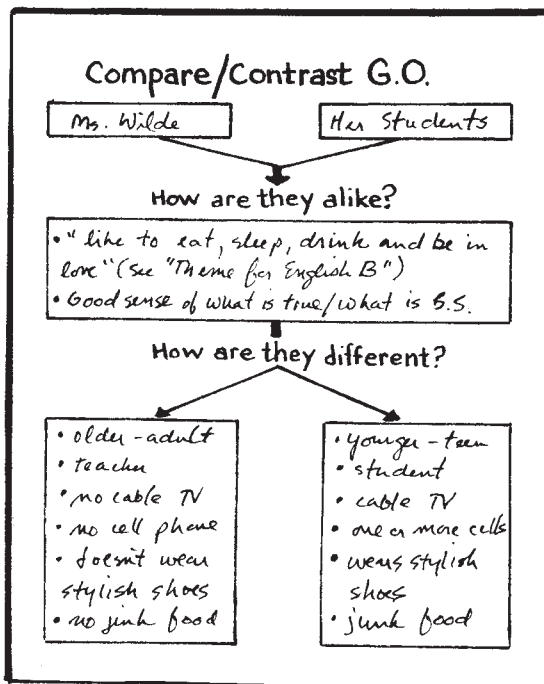 Compare/Contrast G.O.
Ms. Wilde
Her Students
How are they alike?
• "like to eat, sleep, drink and be in
love" (see "Theme for English B")
• Good sense of what is true/what is B.S.
How are they different?
• older-adult
• teacher
• no cable TV
• no cell phone
• doesn't wear
stylish shoes
• no junk food
• younger-teen
• student
• cable TV
• one or more cells
• wears stylish
shoes
• junk food